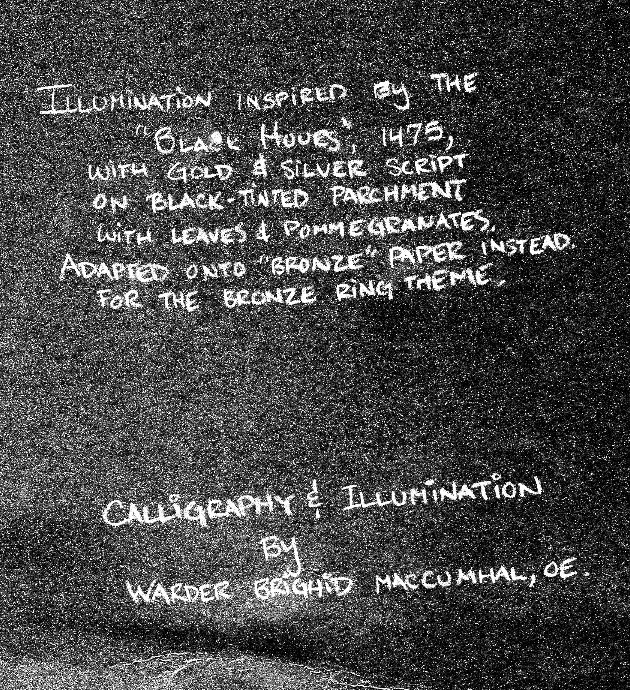 ILLUMINATION INSPIRED By THE
"BLACK HOURS", 1475,
WITH GOLD & SILVER SCRIPT
ON BLACK-TINTED PARCHMENT
WITH LEAVES & POMMEGRANATES.
ADAPTED ONTO "BRONZE" PAPER INSTEAD.
FOR THE BRONZE RING THEME.
CALLIGRAPHY & ILLUMINATION
By
WARDER BRIGHID MACCUMHAL, OE.